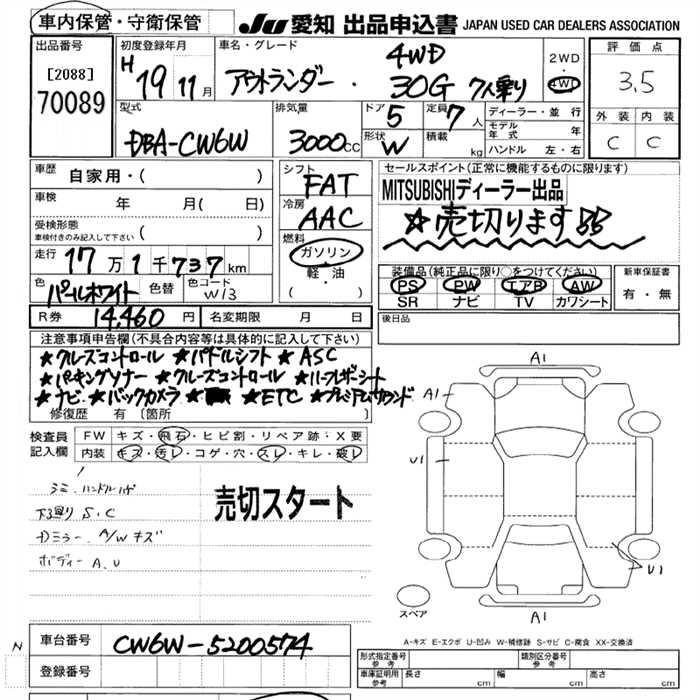 車内保管・守衛保管 JU 愛知 出品申込書 JAPAN USED CAR DEALERS ASSOCIATION
出品番号 初度登録年月 車名・グレード 2WD 評価点
[2088] H 19 11月 アウトランダー・ 4WD 30G 7人乗り 4WD 3.5
70089
型式 排気量 ドア 5 定員 7人 ディーラー・並行 外装 内装
DBA-CW6W 3000CC 形状 W 積載 kg モデル年式 年 C C
ハンドル 左・右
車歴 自家用・( ) シフト FAT セールスポイント(正常に機能するものに限ります)
車検 年 月( 日) 冷房 AAC MITSUBISHIディーラー出品
受検形態 ( ) ☆売切ります
車検付きのみ記入して下さい
燃料 ガソリン・軽・油 ( )
走行 17万1千737km
装備品(純正品に限り○をつけてください) 新車保証書
色 パールホワイト 色替 色コード W13 PS PW エアB AW 有・無
SR ナビ TV カワシート
R券 14,460円 名変期限 月 日 後日品
注意事項申告欄(不具合内容等は具体的に記入して下さい)
★クルーズコントロール ★パドルシフト ★ASC
★パーキングソナー ★クルーズコントロール ★ハーフレザーシート
★ナビ ★バックカメラ ★ETC ★プレミアムサウンド
修復歴 有 〔箇所
検査員記入欄 FW キズ・飛石・ヒビ割・リペア跡:X要
内装 キズ・汚レ・コゲ・穴・スレ・キレ・破レ
ハンドル
下廻り S.C
Dミラー. A/W キズ
ボディー A.U
売切スタート
A1
A1
U1
U1
A1
スペア
A-キズ E-エクボ U-凹み W-補修跡 S-サビ C-腐食 XX-交換済
N
車台番号 CW6W-5200574
登録番号
形式指定番号 参考 類別区分番号 参考
車庫証明用 参考 長さ cm 幅 cm 高さ cm